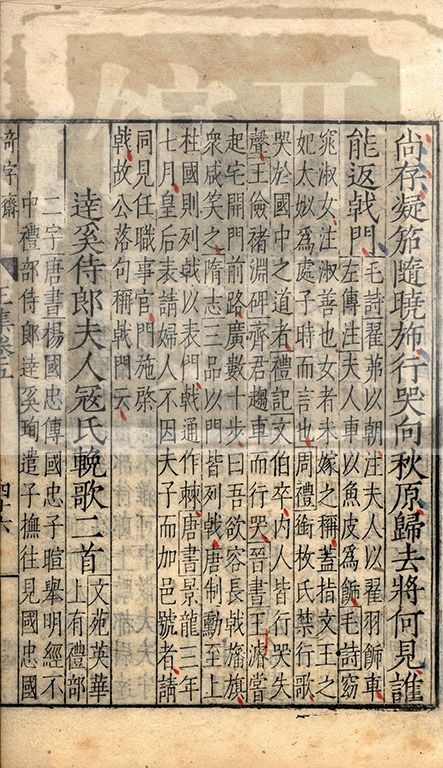 尙存凝笳隨曉斾行哭向秋原歸去將何見誰
能返戟門
毛詩翟茀以朝注夫人以翟羽飾車
左傳注夫人車以魚皮爲飾毛詩窈
窕淑女注淑善也女者未嫁之稱蓋指文王之
妃太姒爲處子時而言也周禮銜枚氏禁行歌
哭於國中之道者禮記文伯卒内人皆行哭失
聲王儉褚淵碑齊君趨車而行哭晉書王濬嘗
起宅開門前路廣數十步曰吾欲容長戟旛旗
衆咸笑之隋志三品以門皆列戟唐制勳至上
柱國則列戟以表門戟通作棘唐書景龍三年
七月皇后表請婦人不因夫子而加邑號者請
同見任職事官門施棨
戟故公落句稱戟門云
逹奚侍郎夫人寇氏輓歌二首
文苑英華
上有禮部
二字唐書楊國忠傳國忠子暄舉明經不
中禮部侍郎逹奚珣遣子撫往見國忠國
奇字齋
王集卷五
四十六